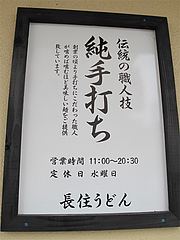 伝統の職人技
純手打ち
創業の頃より手打ちにこだわった職人
が噛めば噛むほど美味しい麺をご提供
致しています。
営業時間 11:00～20:30
定休日 水曜日
長住うどん